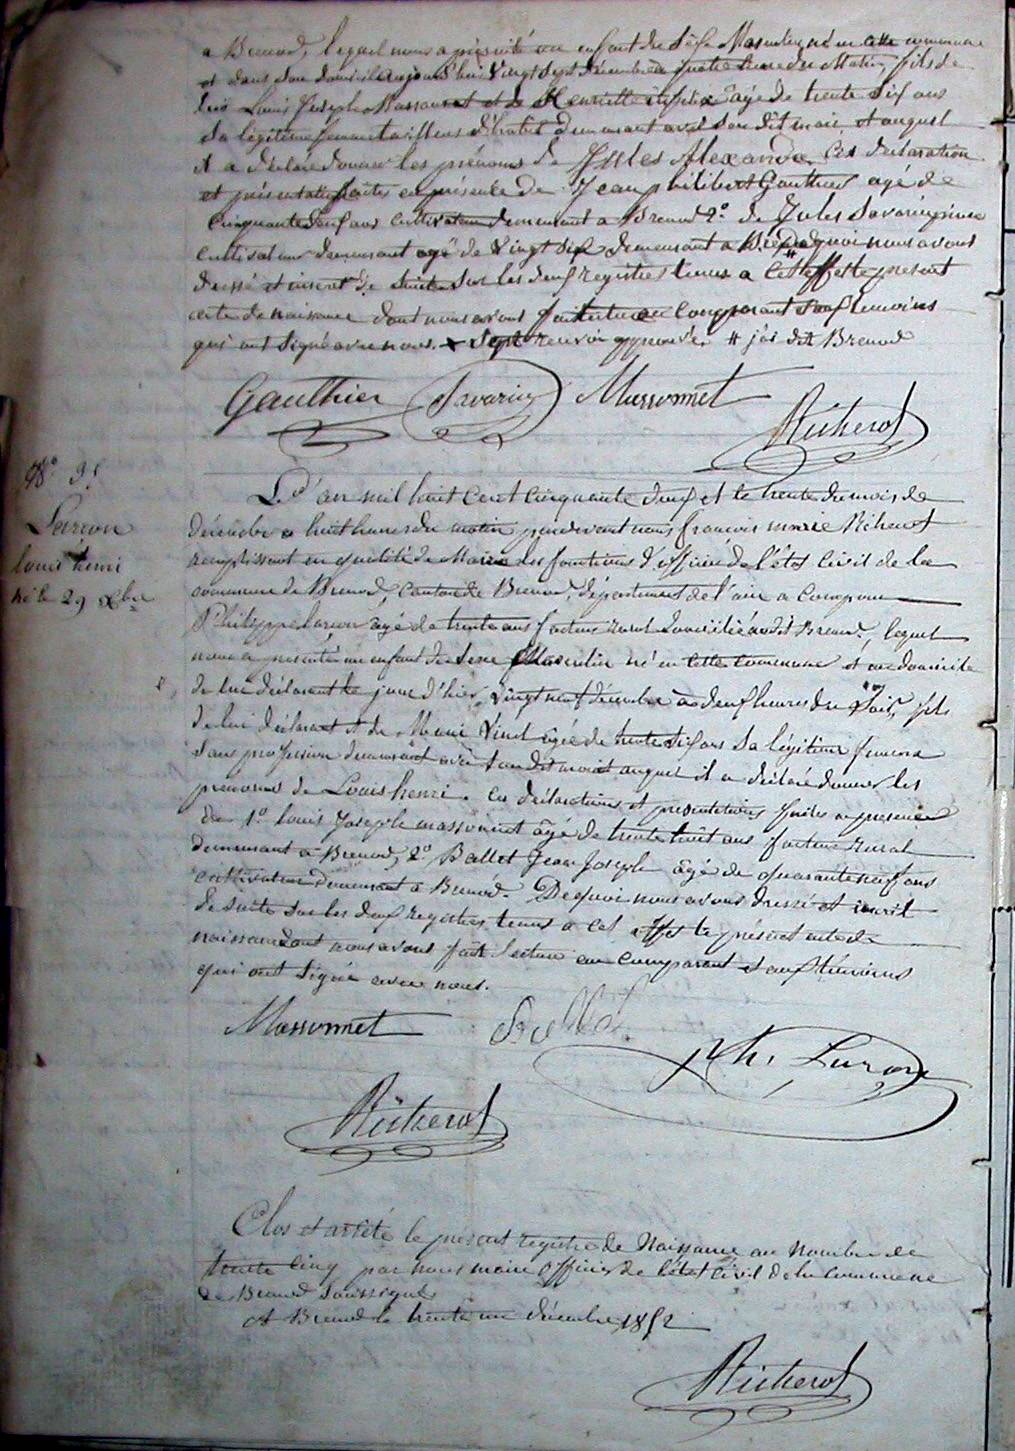 a Brenod, lequel nous a présenté un enfant du sèxe Masculin, né en cette commune
et dans son domicile aujourd'hui vingt sept décembre a quatre heure du Matin, fils de
lui Louis Joseph Massonnet et de Henriette âgé de trente six ans
sa légitime femme demeurant avec son dit mari, et auquel
il a déclaré donner les prénoms de Jules Alexandre. Ces declaration
et présentation faites en présence de Jean philibert Gauthier agé de
cinquante deuf ans cultivateur demeurant a Brenod 2º de Jules Savarin
cultivateur demeurant agé de vingt six demeurant a de quoi nous avons
dressé et inscrit de suite sur les deuf registres tenus a cet effet le present
acte de naissance dont nous avons fait lecture au comparant et auf temoins
qui ont signé avec nous. Sept renvoi approuvé. # jas dit Brenod
Gauthier Savarin Massonnet
Richerot
Nº 35
Larron
louis henri
né le 29 Xbre
L'an mil huit cent cinquante deuf et le trente du mois de
décembre a huit heures du matin pardevant nous françois marie Richerot
remplissant en qualité de Maire les fonctions d'officier de l'état Civil de la
commune de Brenod, Canton de Brenod, département de l'ain a comparu
Philippe Larron agé de trente ans facteur rural domicilié audit Brenod, lequel
nous a présenté un enfant de sexe Masculin né en cette commune et au domicile
de lui déclarant le jour d'hier, vingt neuf décembre a deuf heures du soir, fils
de lui déclarant et de Marie Vinet âgée de trente six ans sa légitime femme
sans profession demeurant avec son dit mari et auquel il a déclaré donner les
prénoms de Louis henri. Ces déclarations et présentations faites en présence
de 1º. louis Joseph massonnet âgé de trente huit ans facteur rural
demeurant a Brenod, 2º. Ballet Jean Joseph âgé de quarante neuf ans
cultivateur demeurant a Brenod. De quoi nous avons dressé et inscrit
de suite sur les deuf registres tenus a cet effet le présent acte de
naissance dont nous avons fait lecture au comparant et auf témoins
qui ont signé avec nous.
Massonnet Ballet
Ph. Larron
Richerot
Clos et arrêté le présent registre de Naissance au nombre de
trente cinq par nous maire officier de l'état civil de la commune
de Brenod soussigné
A Brenod le trente un décembre 1852
Richerot